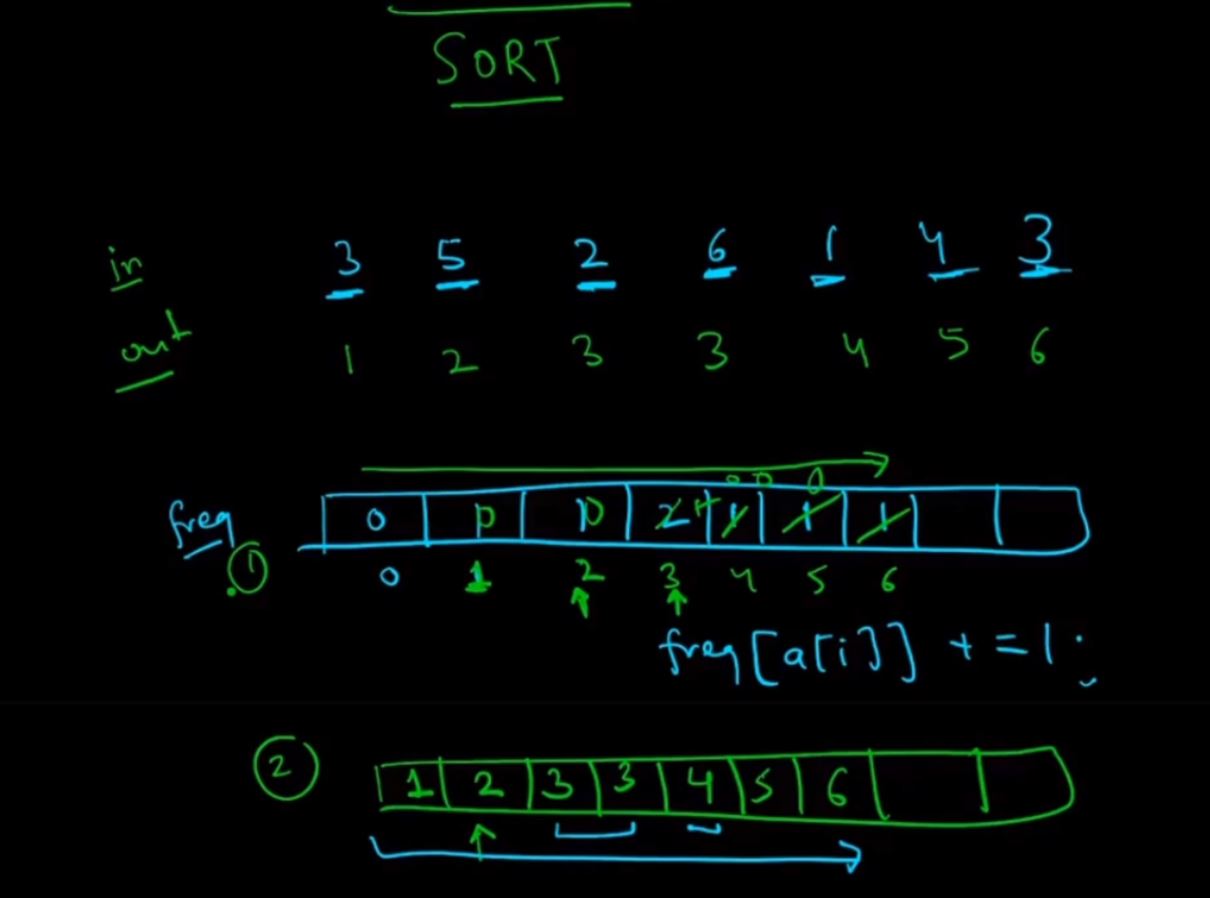 SORT
in 3 5 2 6 1 4 3
out 1 2 3 3 4 5 6
0 0 0
freq 0 0 0 2 1 1 1
1 0 1 2 3 4 5 6
freq[a[i]] += 1;
2 1 2 3 3 4 5 6